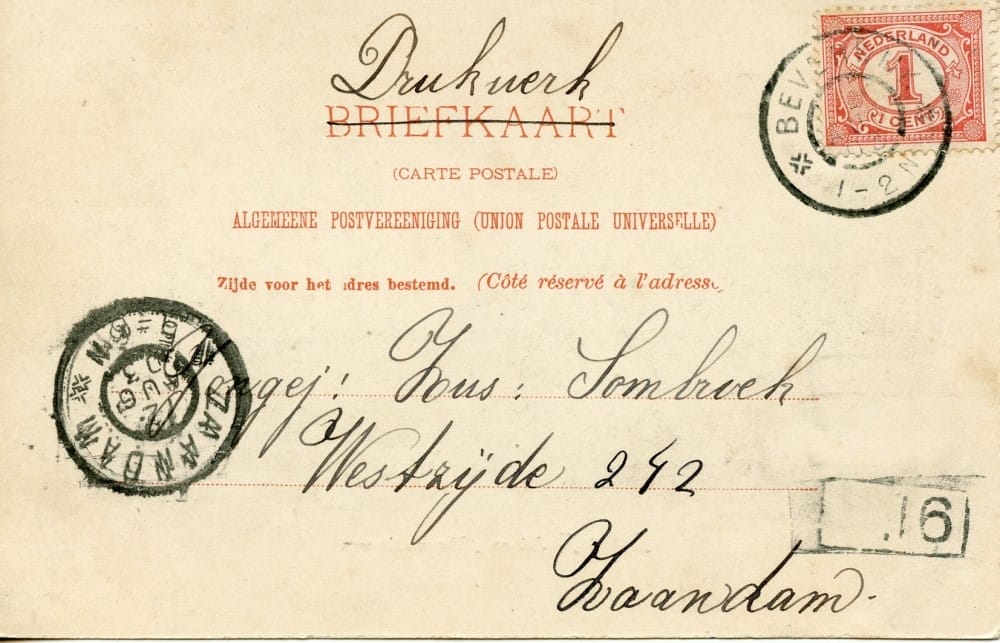 Drukwerk
BRIEFKAART
(CARTE POSTALE)
ALGEMEENE POSTVEREENIGING (UNION POSTALE UNIVERSELLE)
Zijde voor het adres bestemd. (Côté réservé à l'adresse
NEDERLAND
1
CENT
BEV
1-2N
ZAANDAM
Jongej: Zus: Sombroek
Westzijde 242
Zaandam.
16